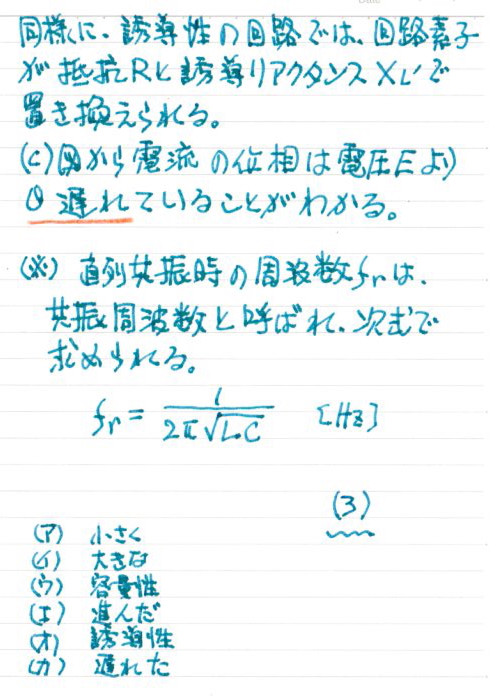 同様に、誘導性の回路では、回路素子
が抵抗Rと誘導リアクタンスXL'で
置き換えられる。
(c)図から電流の位相は電圧Eより
θ遅れていることがわかる。
(※) 直列共振時の周波数frは、
共振周波数と呼ばれ、次式で
求められる。
fr = 1 / 2π√L・C [Hz]
(3)
(ア) 小さく
(イ) 大きな
(ウ) 容量性
(エ) 進んだ
(オ) 誘導性
(カ) 遅れた